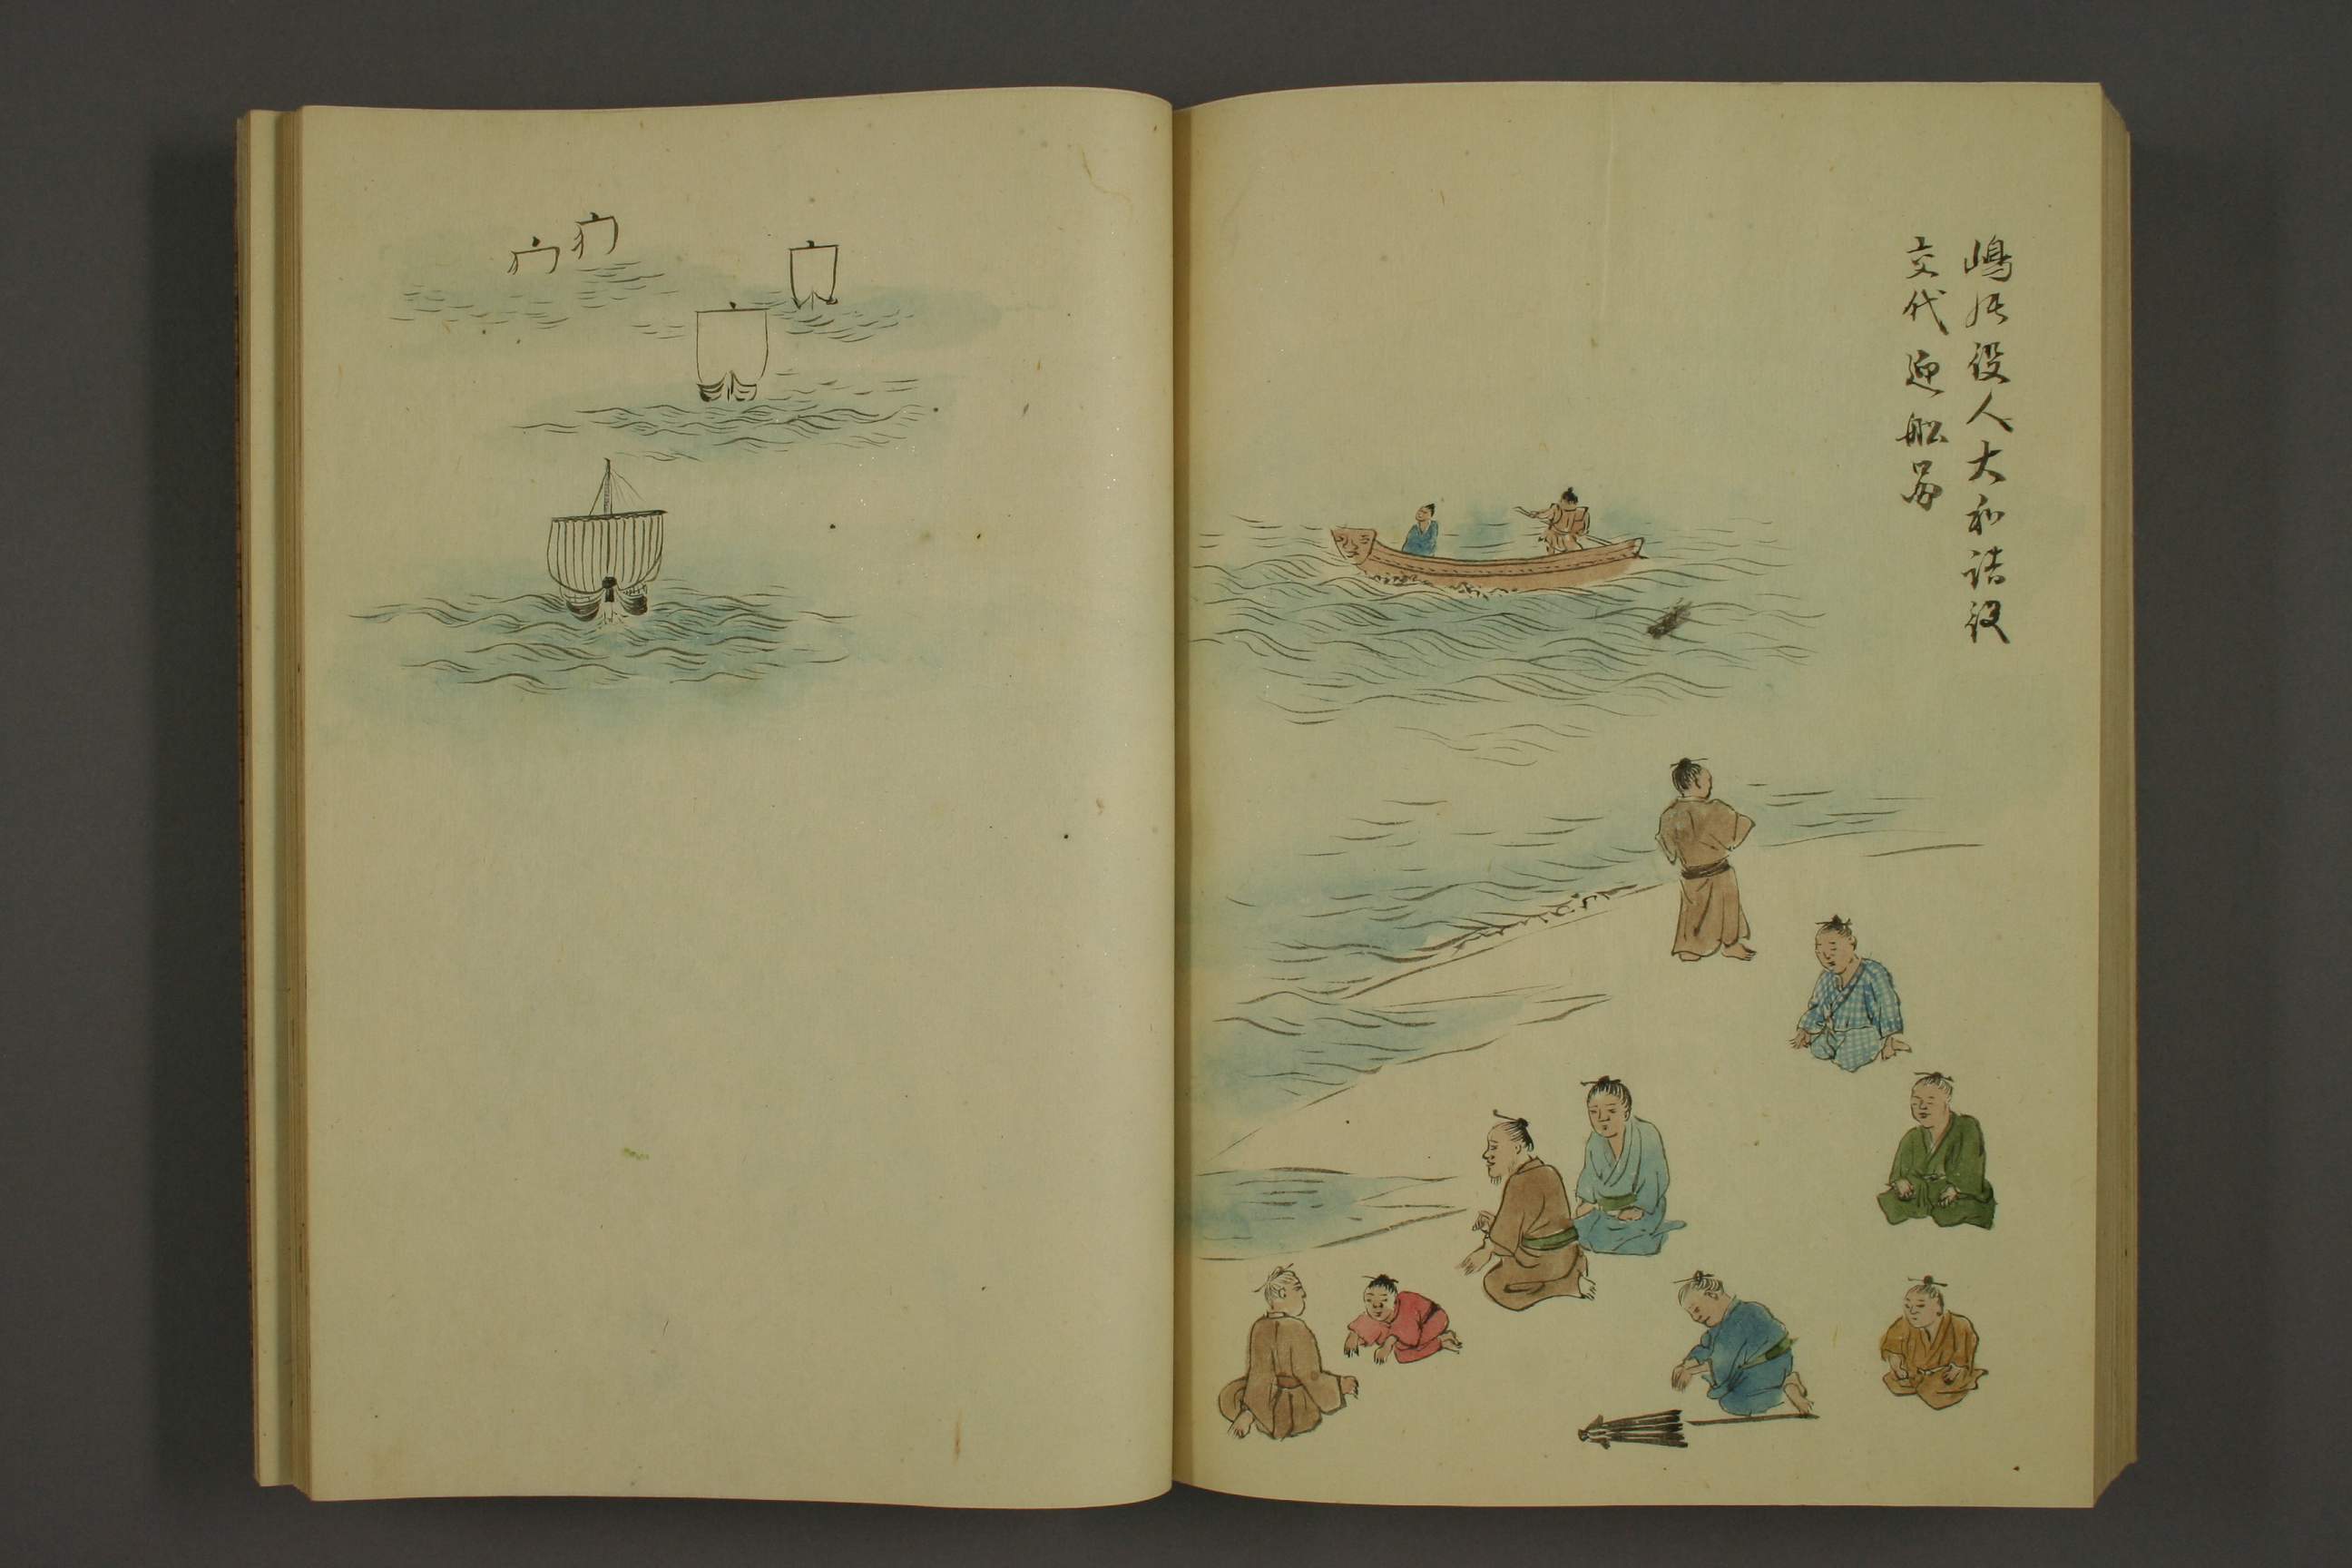 嶋居役人大和詰役
交代迎船図